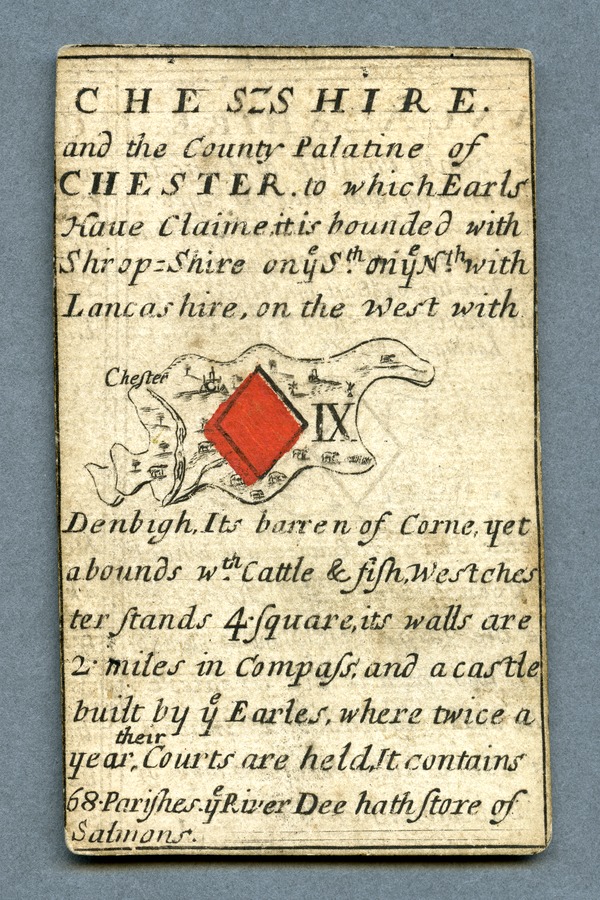 CHE SZS HIRE.
and the County Palatine of
CHESTER. to which Earls
Haue Claime, it is bounded with
Shrop=Shire on yͤ S.th on yͤ N.th with
Lancashire, on the West with
Chester
IX
Denbigh, Its barren of Corne, yet
abounds w.th Cattle & fiſh, Westches
ter ſtands 4·ſquare, its walls are
2· miles in Compaſs, and a castle
built by yͤ Earles, where twice a
their
year, Courts are held, It contains
68· Pariſhes. yͤ River Dee hath ſtore of
Salmons.